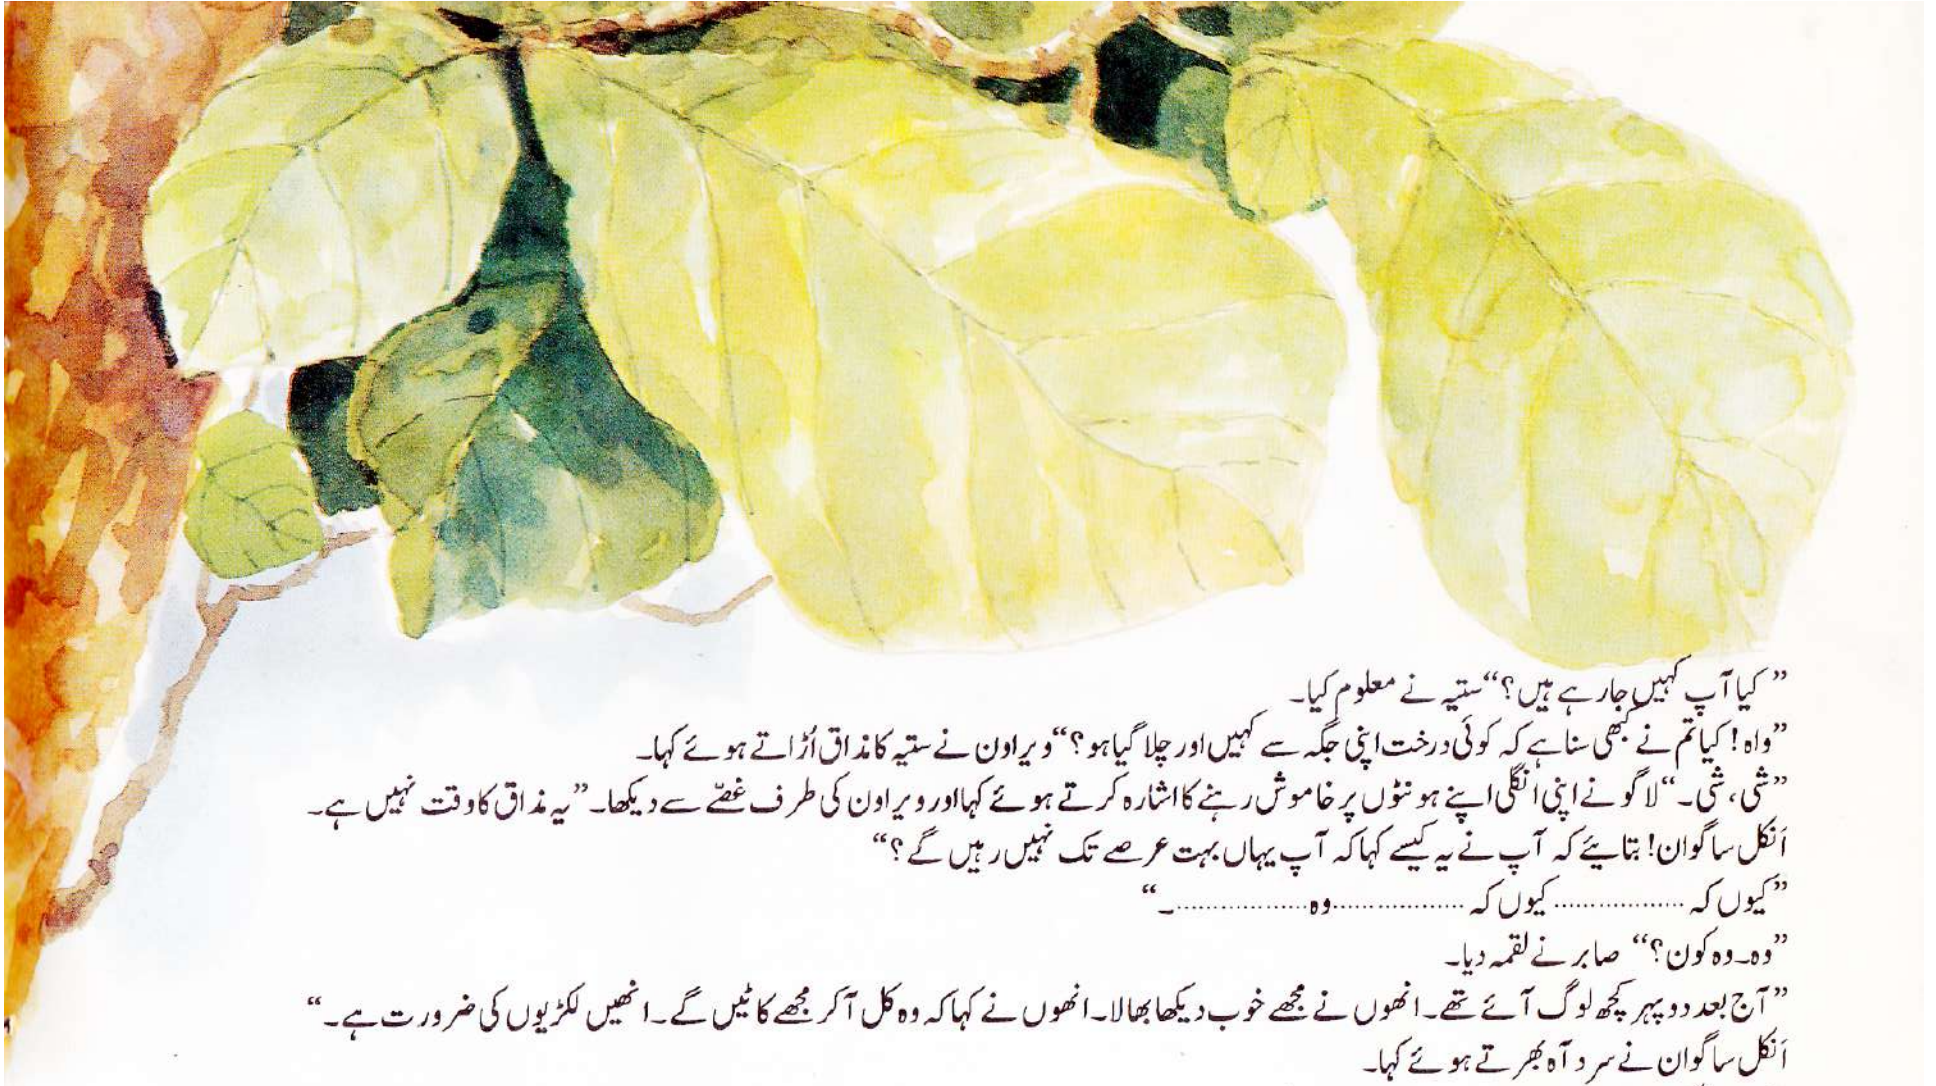 ”کیا آپ کہیں جارہے ہیں؟“ ستیہ نے معلوم کیا۔
”واہ! کیا تم نے کبھی سنا ہے کہ کوئی درخت اپنی جگہ سے کہیں اور چلا گیا ہو؟“ ویراون نے ستیہ کا مذاق اُڑاتے ہوئے کہا۔
”شی، شی۔“ لاگو نے اپنی انگلی اپنے ہونٹوں پر خاموش رہنے کا اشارہ کرتے ہوئے کہا اور ویراون کی طرف غصّے سے دیکھا۔ ”یہ مذاق کا وقت نہیں ہے۔
اَنکل ساگوان! بتایئے کہ آپ نے یہ کیسے کہا کہ آپ یہاں بہت عرصے تک نہیں رہیں گے؟“
”کیوں کہ ................. کیوں کہ .................وہ.................۔“
”وہ۔وہ کون؟“ صابر نے لقمہ دیا۔
”آج بعد دوپہر کچھ لوگ آئے تھے۔ انھوں نے مجھے خوب دیکھا بھالا۔ انھوں نے کہا کہ وہ کل آکر مجھے کاٹیں گے۔ انھیں لکڑیوں کی ضرورت ہے۔“
اَنکل ساگوان نے سرد آہ بھرتے ہوئے کہا۔